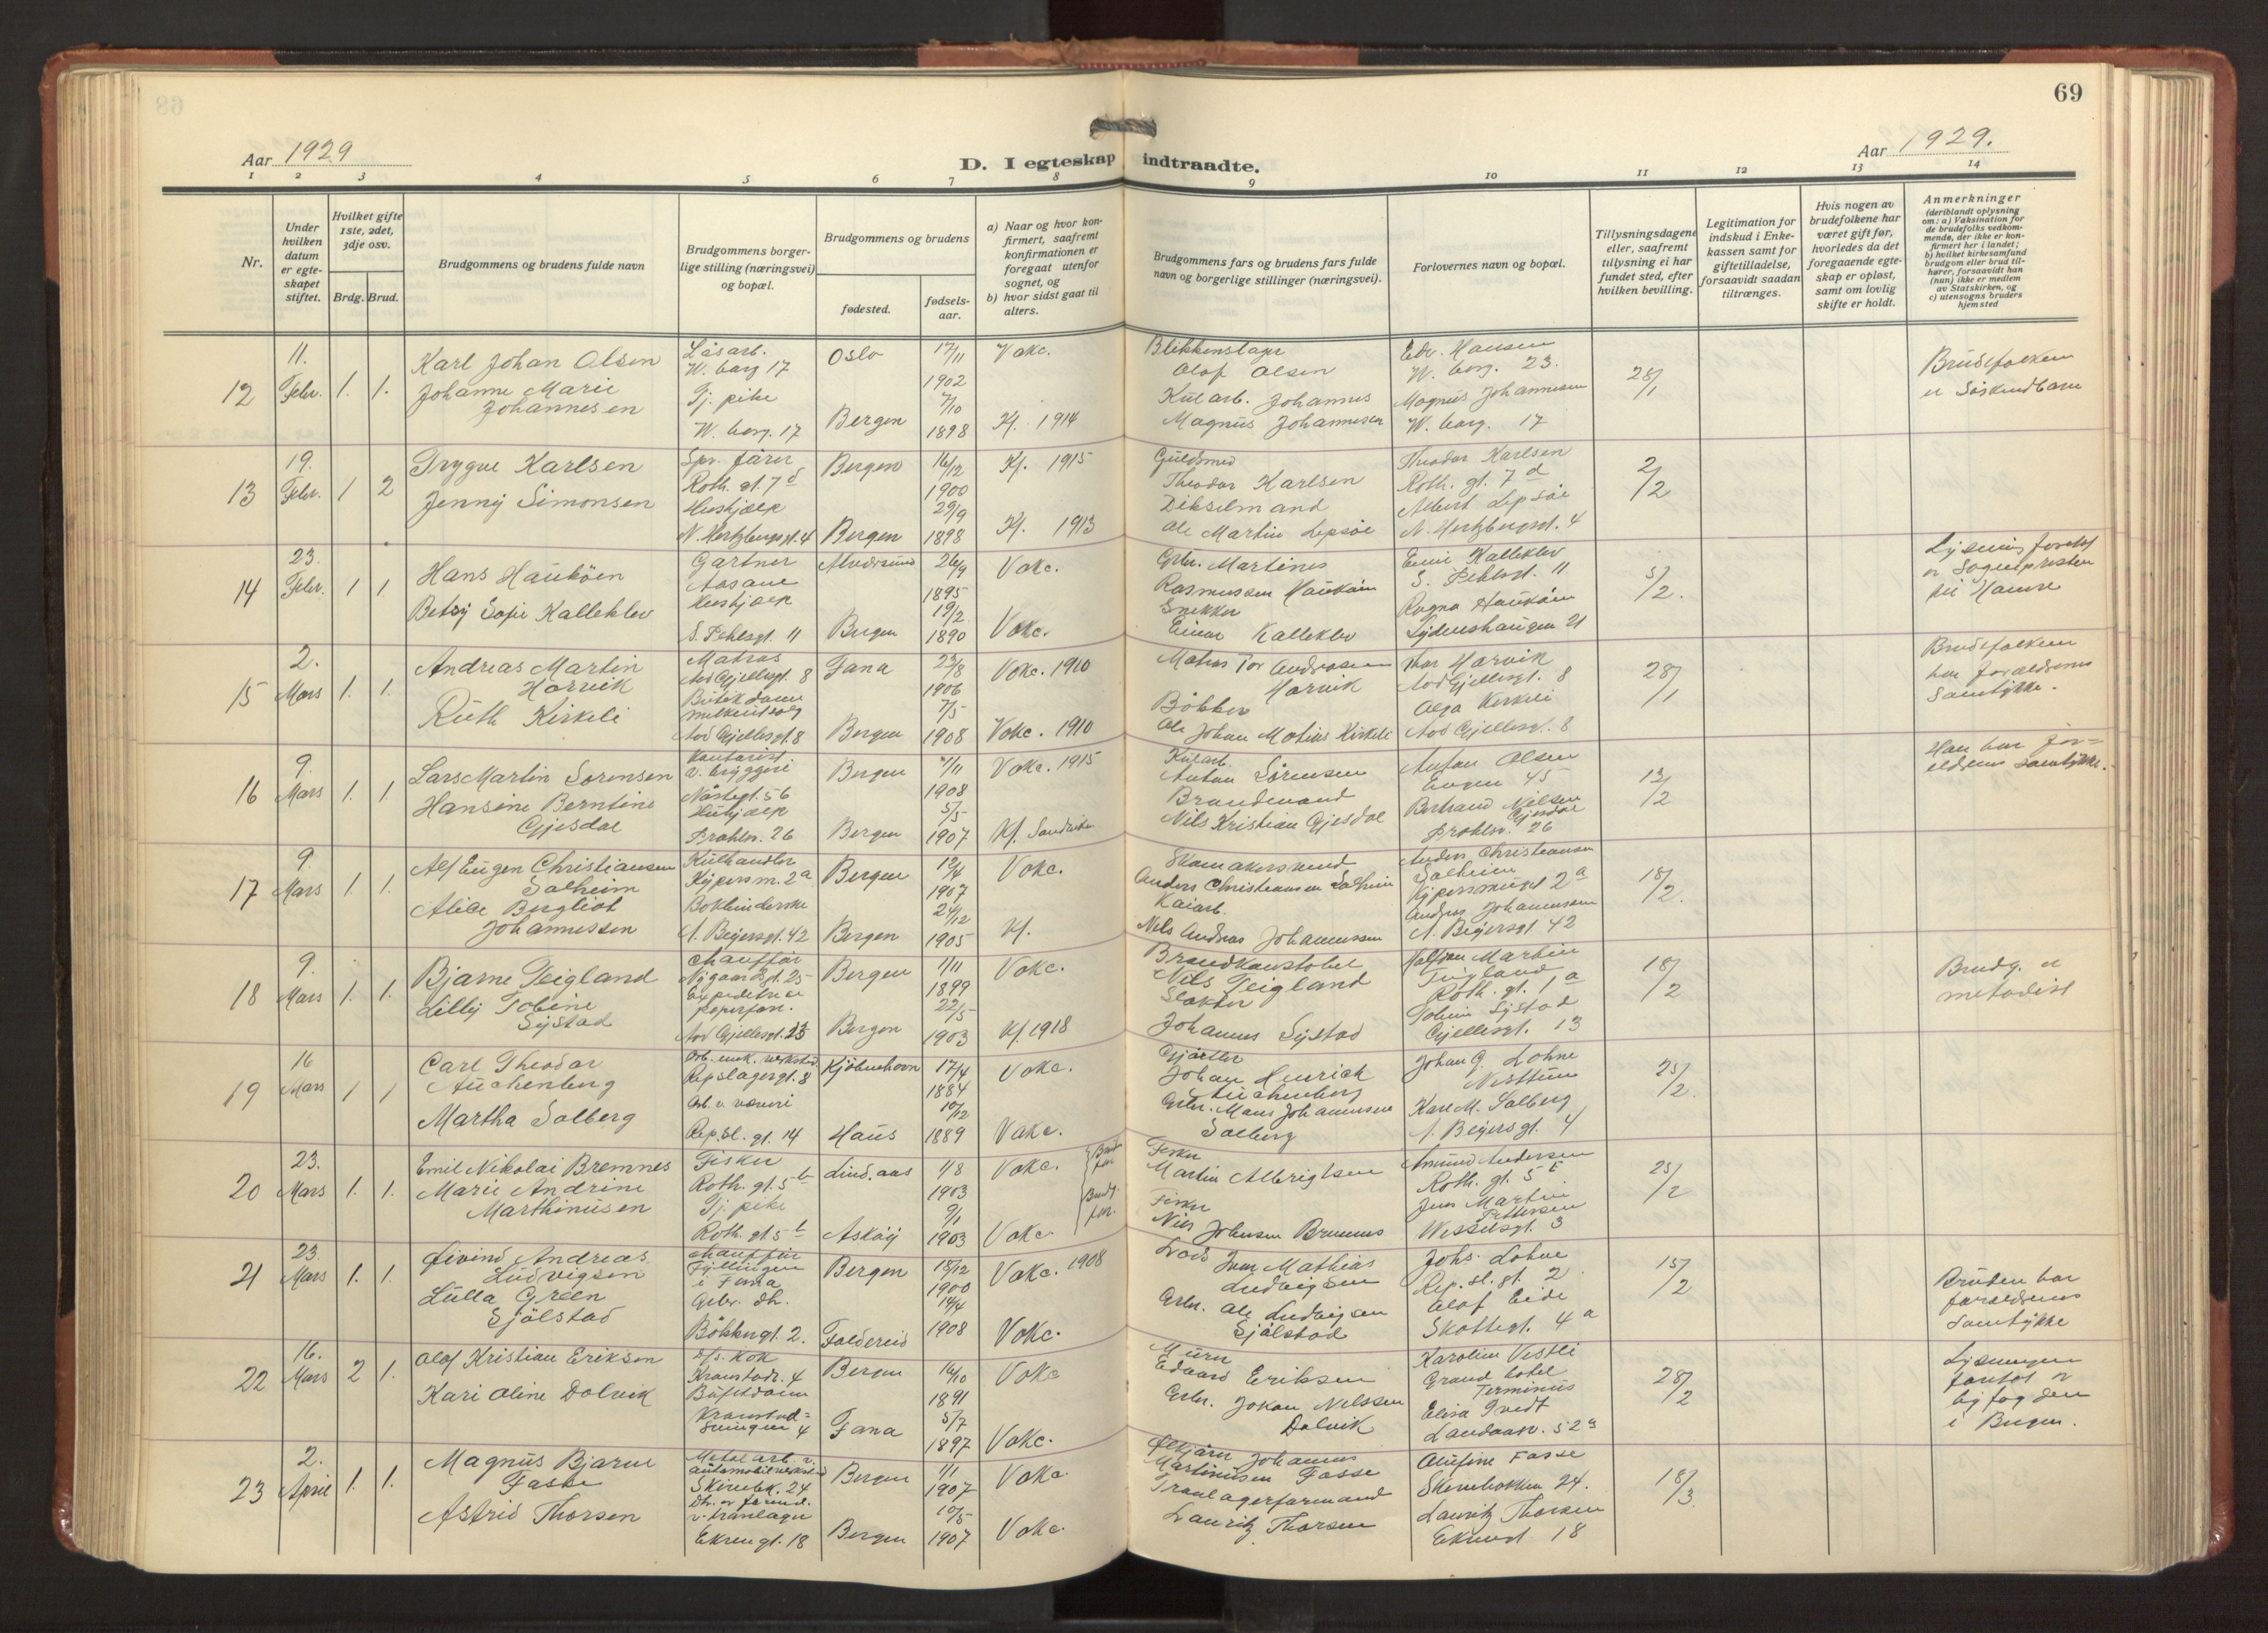 69
Aar 1929
D. I egteskap indtraadte.
Aar 1929.
1 2 3 4 5 6 7 8 9 10 11 12 13 14
Nr.
Under hvilken datum er egteskapet stiftet.
Hvilket gifte 1ste, 2det, 3dje osv.
Brdg. Brud.
Brudgommens og brudens fulde navn
Brudgommens borgerlige stilling (næringsvei) og bopæl.
Brudgommens og brudens
fødested.
fødselsaar.
a) Naar og hvor konfirmert, saafremt konfirmationen er foregaat utenfor sognet, og
b) hvor sidst gaat til alters.
Brudgommens fars og brudens fars fulde navn og borgerlige stillinger (næringsvei).
Forlovernes navn og bopæl.
Tillysningsdagene eller, saafremt tillysning ei har fundet sted, efter hvilken bevilling.
Legitimation for indskud i Enkekassen samt for giftetilladelse, forsaavidt saadan tiltrænges.
Hvis nogen av brudefolkene har været gift før, hvorledes da det foregaaende egteskap er opløst, samt om lovlig skifte er holdt.
Anmerkninger
(deriblandt oplysning om: a) Vaksination for de brudefolks vedkommende, der ikke er konfirmert her i landet;
b) hvilket kirkesamfund brudgom eller brud tilhører, forsaavidt han (hun) ikke er medlem av Statskirken, og
c) utensogns bruders hjemsted
12
11. Febr.
1. 1.
Karl Johan Olsen
Johanne Marie
Johannesen
W. borg 17
Tj. pike
W. borg. 17
Oslo
Bergen
17/11
1902
7/10
1898
Vokc.
Kf. 1914
Blikkenslager
Olaf Olsen
Johannes
Magnus Johannesen
Edv. Hansen
W. borg. 23.
Magnus Johannesen
W. borg. 17
28/1
Brudefolkene
er Söskendbarn
13
19. Febr.
1 2
Trygve Karlsen
Jenny Simonsen
Roth. gt. 7 d
Hushjælp
N. Hertzbergsgt. 4
Bergen
Bergen
16/12
1900
29/9
1898
Kf. 1915
Kf. 1913
Guldsmed
Theodor Karlsen
Dikselmand
Ole Martin Lepsöe
Theodor Karlsen
Roth. gt. 7 d
Albert Lepsöe
N. Hertzbergsgt. 4
2/2
14
23. Febr.
1 1
Hans Hauköen
Betsy Sofie Kalleklev
Gartner
Aasane
Hushjælp
S. Pihlsgt. 11
Alversund
Bergen
26/9
1895
19/2
1890
Vokc.
Vokc.
Grbr. Martines
Rasmussen Hauköen
Snekker
Einar Kalleklev
Kalleklev
S. Pihlsgt. 11
Ragna Hauköen
Sydneshaugen 21
5/2.
Lysning foretat
av Sogneprästen
til Hamre
15
2. Mars
1. 1.
Andreas Martin
Harvik
Ruth Kirkeli
Matros
Nod Gjellesgt. 8
Butikdame
melkeutsalg
Nod Gjellesgt. 8
Fana
Bergen
23/8
1906
7/5
1908
Vokc. 1910
Vokc. 1910
Matros Tor Andreasen
Harvik
Bökker
Ole Johan Matias Kirkeli
Thor Harvik
Nod Gjellesgt. 8
Olga Kirkeli
Nod Gjellesgt. 8
28/1
Brudefolkene
har forældrenes
Samtykke.
16
9. Mars
1. 1.
Lars Martin Sörensen
Hansine Berntine
Gjesdal
Kontorist
v. bryggeri
Nöstegt. 56
Hushjælp
Prahlsv. 26
Bergen
Bergen
1908
5/5
1907
Vokc. 1915
Kf. Sandviken
Kularb.
Anton Sörensen
Brandmand
Nils Kristian Gjesdal
Anton Olsen
Engen 45
Bertrand Nilsen
Gjesdal
Prahlsv. 26
13/2
Han har for=
eldrenes samtykke.
17
9. Mars
1 1.
Alf Eugen Christiansen
Solheim
Alice Bergliot
Johannessen
Kulhandler
Kypersm. 2a
Bokbinderske
A. Beyersgt. 42
Bergen
Bergen
12/4
1907
24/12
1905
Vokc.
Kf.
Skomakersvend
Anders Christiansen Solheim
Kaiarb.
Nils Andreas Johannessen
Anders Christiansen
Solheim
Kypersmuget 2a
Andreas Johannessen
A. Beyersgt 42
18/2.
18
9. Mars
1. 1.
Bjarne Teigland
Lilly Tobine
Systad
Chaufför
Nygaardsgt. 25
Expeditrice
papirforr.
Nod Gjellesgt. 23
Bergen
Bergen
1/11
1899
22/5
1903
Vokc.
Kf 1918
Brandkonstabel
Nils Teigland
Slakter
Johannes Systad
Halfdan Martin
Teigland
Roth. gt. 1a
Tobine Systad
Gjellesgt. 13
18/2
Brudg. er
metodist
19
16 Mars
1 1
Carl Theodor
Auchenberg
Martha Solberg
Arb. mek. verksted
Repslagergt. 8
Arb. v. væveri
Rep.sl. gt. 14
Kjöbenhavn
Haus
17/4
1884
10/12
1889
Vokc.
Vokc.
Gjörtler
Johan Henrich
Auchenberg
Grbr. Mons Johannesen
Solberg
Johan G. Lohne
Nesttun
Kari M. Solberg
A. Beyersgt. 4
25/2.
20
23. Mars
1. 1.
Emil Nikolai Bremnes
Marie Andrine
Marthinusen
Fisker
Roth. gt. 5b
Tj. pike
Roth. gt. 5b
Lindaas
Asköy
1/8
1903
9/1
1903
Vokc.
Vokc.
Fisker
Martin Albrigtsen
Fisker
Nils Johansen Bremnes
Amund Andersen
Roth. gt. 5b
Jens Martin
Pettersen
Wesselsgt. 3
25/2
21
23. Mars
1. 1.
Öivind Andreas
Ludvigsen
Lulla Green
Sjölstad
Chaufför
Fyllingen
i Fana
Grbr. dh.
Bökkergt. 2.
Bergen
Foldereid
18/12
1900
14/4
1908
Vokc. 1908
Vokc.
Lods Ivar Mathias
Ludvigsen
Grbr. Ole Ludvigsen
Sjölstad
Johs. Lohne
Rep. sl. gt. 2
Olaf Eide
Skottegt. 4a
15/2
Bruden har
forældrenes
Samtykke
22
16. Mars
2 1.
Olaf Kristian Eriksen
Kari Oline Dolvik
d/s. Kok
Kranstadr. 4
Bufetdame
4
Bergen
Fana
16/10
1891
5/7
1897
Vokc
Vokc.
Murer
Edvard Eriksen
Grbr. Johan Nilssen
Dolvik
Karoline Vestli
Grand hotel
Terminus
Elisa Tvedt
Landaasv. 52a
28/2
Lysningen
foretat av
byfogden
i Bergen.
23
2. April
1. 1.
Magnus Bjarne
Fasse
Astrid Thorsen
Metalarb. v.
automobilverksted
Skivebk. 24
Dh. av formd.
v. tranlager
Ekrengt. 18
Bergen
Bergen
1/1
1907
10/5
1907
Vokc.
Vokc.
Johannes
Martinusen Fasse
Tranlagerformand
Lauritz Thorsen
Olufine Fasse
Skivebakken 24.
Lauritz Thorsen
Ekrengt. 18
18/3.